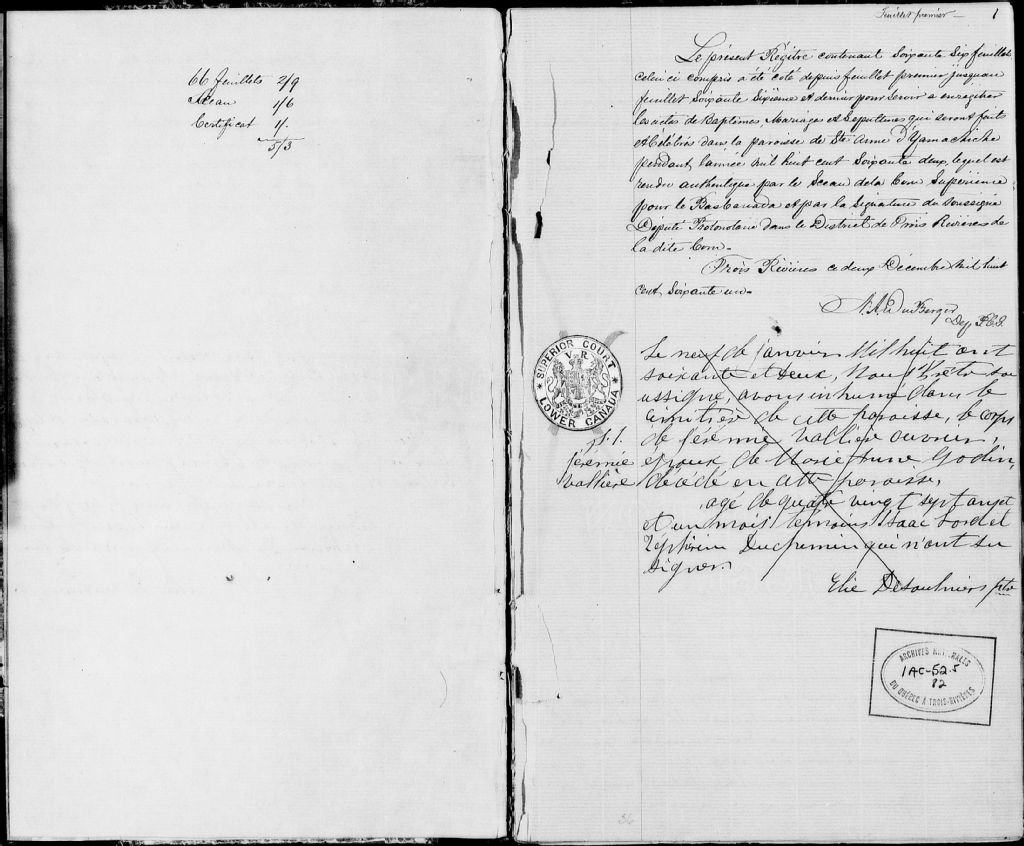 66 feuillets 2/9
Sceau 1/6
Certificat 1/.
5/3
Feuillet premier — 1
Le présent Régitre contenant Soixante Six feuillets
celui ci compris a été coté depuis feuillet premier jusquau
feuillet Soixante Sixième et dernier pour Servir a enregitrer
les actes de Baptêmes, Mariages et Sepultures qui seront faits
et Célébrés dans la paroisse de Ste Anne d'Yamachiche
pendant l'année mil huit cent Soixante deux, lequel est
rendu authentique par le Sceau de la Cour Supérieure
pour le Bas Canada et par la Signature du Soussigné
Député Protonotaire dans le District de Trois Rivières de
la dite Cour.
Trois Rivières ce deux Décembre Mil huit
cent Soixante un.
Dep P.C.S.
SUPERIOR COURT
V R
LOWER CANADA
Le neuf de janvier Mil huit cent
soixante et deux, Nous Prêtre sou
ussigné, avons inhumé dans le
cimitière de cette paroisse, le corps
de Jérémie Vallière ouvrier,
époux de Marie Anne Godin,
décédé en cette paroisse,
agé de quatre vingt sept ans et
et un mois, témoins Isaac Lord et
Zéphirin Duchemin qui n'ont su
signer.
S.1.
Jérémie
Vallière
Elie Desaulniers ptre
ARCHIVES NATIONALES
1AC-52.5
82
DU QUÉBEC À TROIS-RIVIÈRES
36